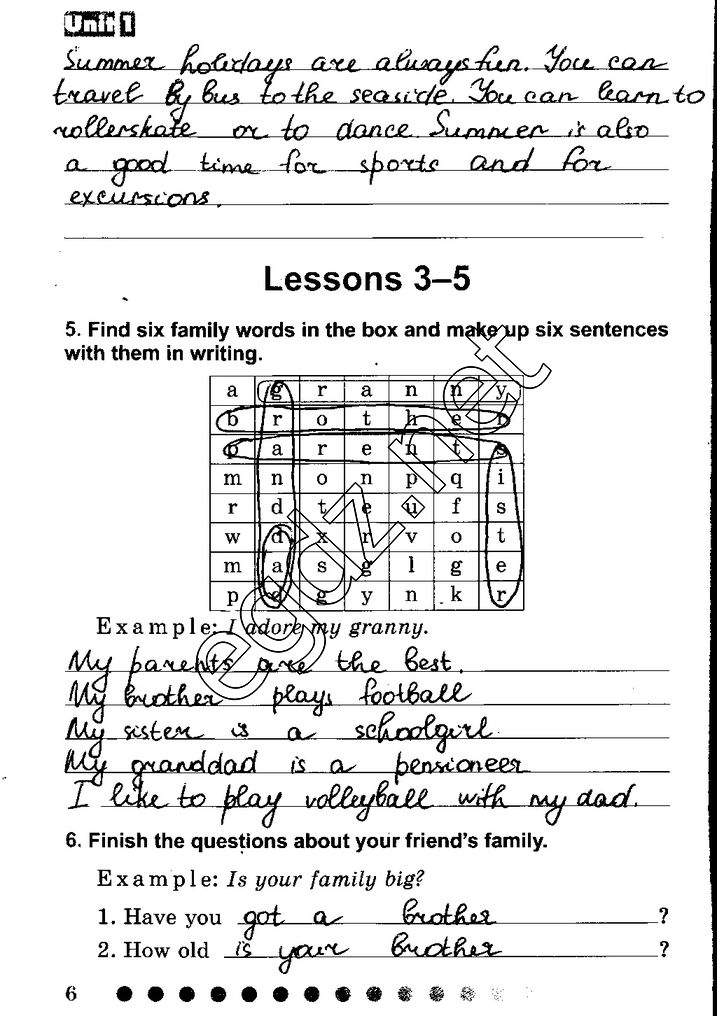 Unit 1
Summer holidays are always fun. You can
travel by bus to the seaside. You can learn to
rollerskate or to dance. Summer is also
a good time for sports and for
excursions.
Lessons 3–5
5. Find six family words in the box and make up six sentences
with them in writing.
a g r a n n y
b r o t h e r
p a r e n t s
m n o n p q i
r d t e u f s
w d x r v o t
m a s g l g e
p d g y n k r
Example: I adore my granny.
My parents are the best.
My brother plays football
My sister is a schoolgirl.
My granddad is a pensioneer
I like to play volleyball with my dad.
6. Finish the questions about your friend's family.
Example: Is your family big?
1. Have you got a brother ?
2. How old is your brother ?
6
egdz.net